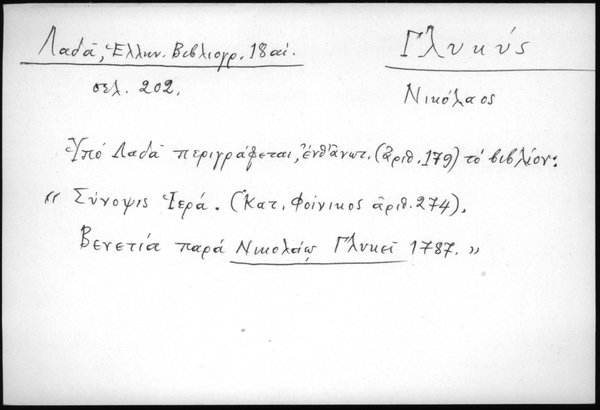 Λαδᾶ, Ἑλλην. Βιβλιογρ. 18 αἰ.
σελ. 202.
Γλυκύς
Νικόλαος
Ὑπό Λαδᾶ περιγράφεται, ἔνθ' ἀνωτ. (ἀριθ. 179) τό βιβλίον:
“ Σύνοψις Ἱερά. (Κατ. Φοίνικος ἀριθ. 274).
Βενετία παρά Νικολάῳ Γλυκεῖ 1787. ”